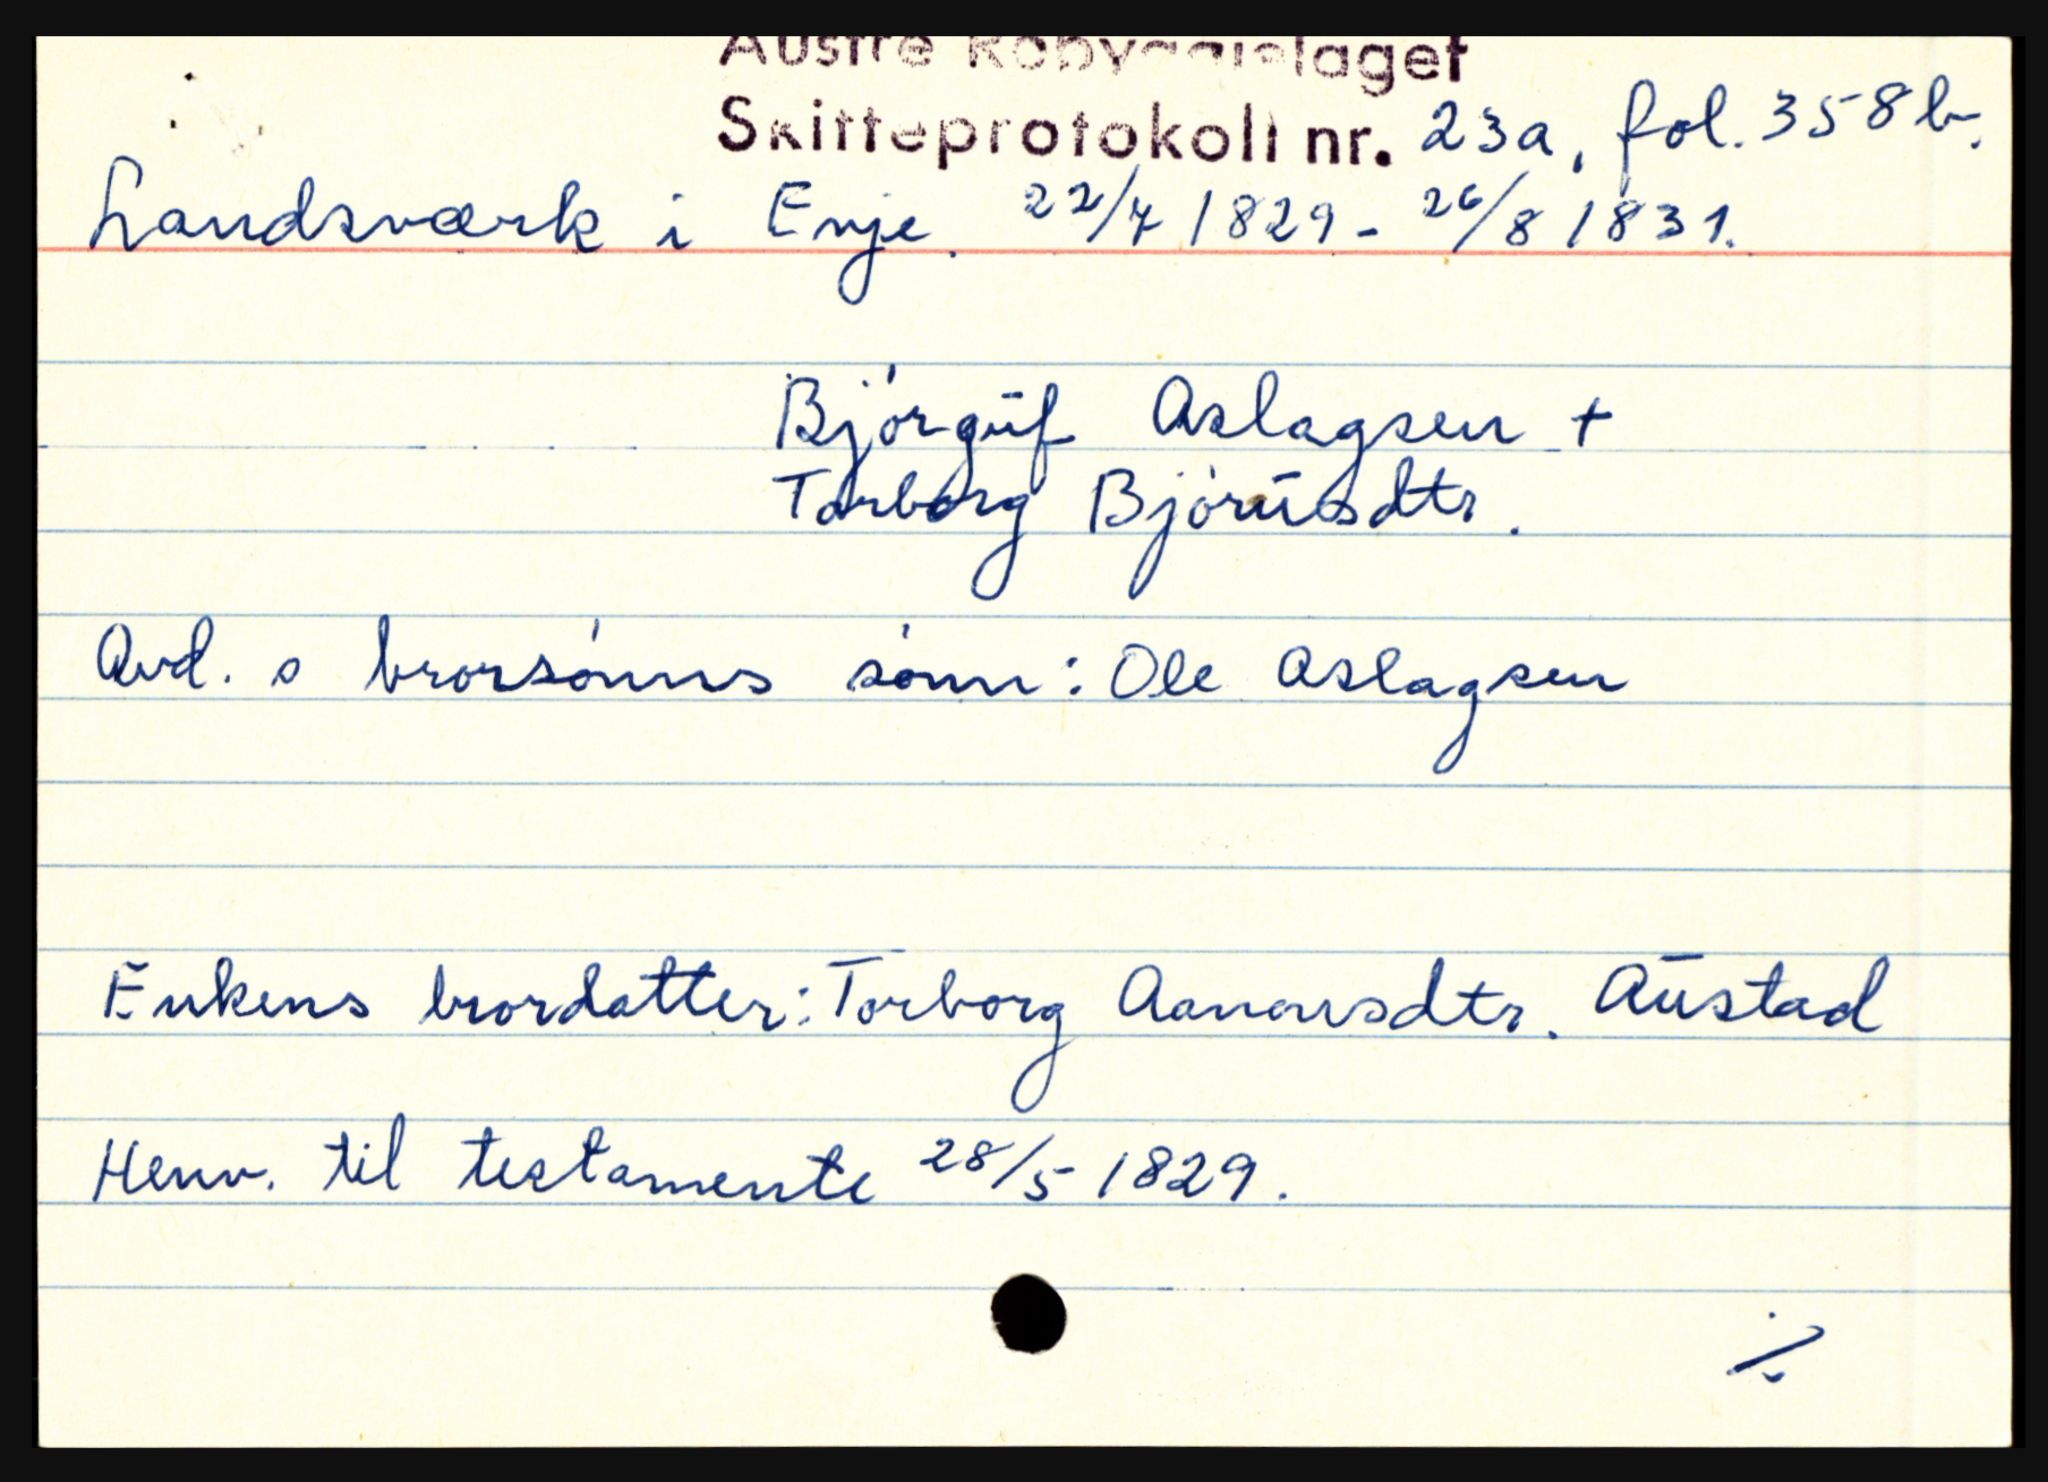 Austre Robyggjelaget
Skifteprotokoll nr. 23a, fol. 358b.
Landsværk i Evje. 22/7 1829 - 26/8 1831.
Bjørguf Aslagsen +
Torborg Bjørusdtr.
Avd. s brorsønns sønn: Ole Aslagsen
Enkens brordatter: Torborg Aanonsdtr. Austad
Henv. til testamente 28/5 1829.